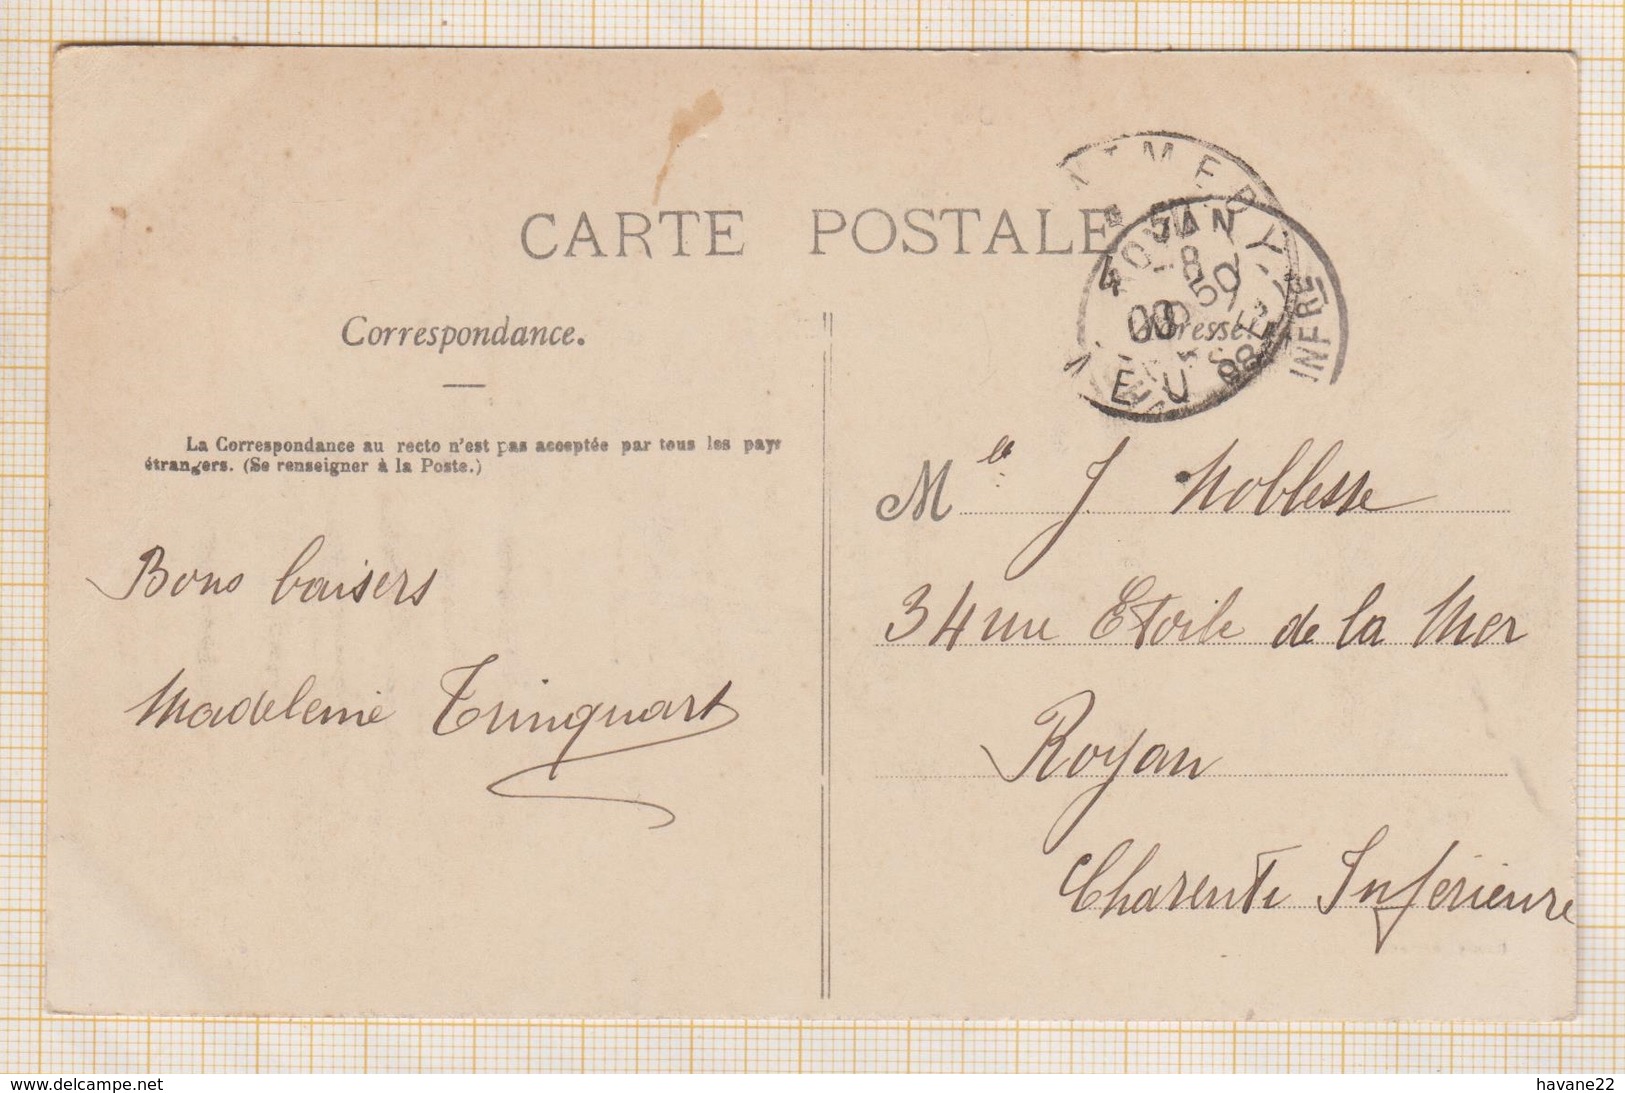 CARTE POSTALE
Correspondance.
La Correspondance au recto n'est pas acceptée par tous les pays
étrangers. (Se renseigner à la Poste.)
Bons baisers
Madeleine Trinquart
JAN
INFRE
Mlle J. Noblesse
34 rue Etoile de la Mer
Royan
Charente Inférieure
www.delcampe.net
havane22